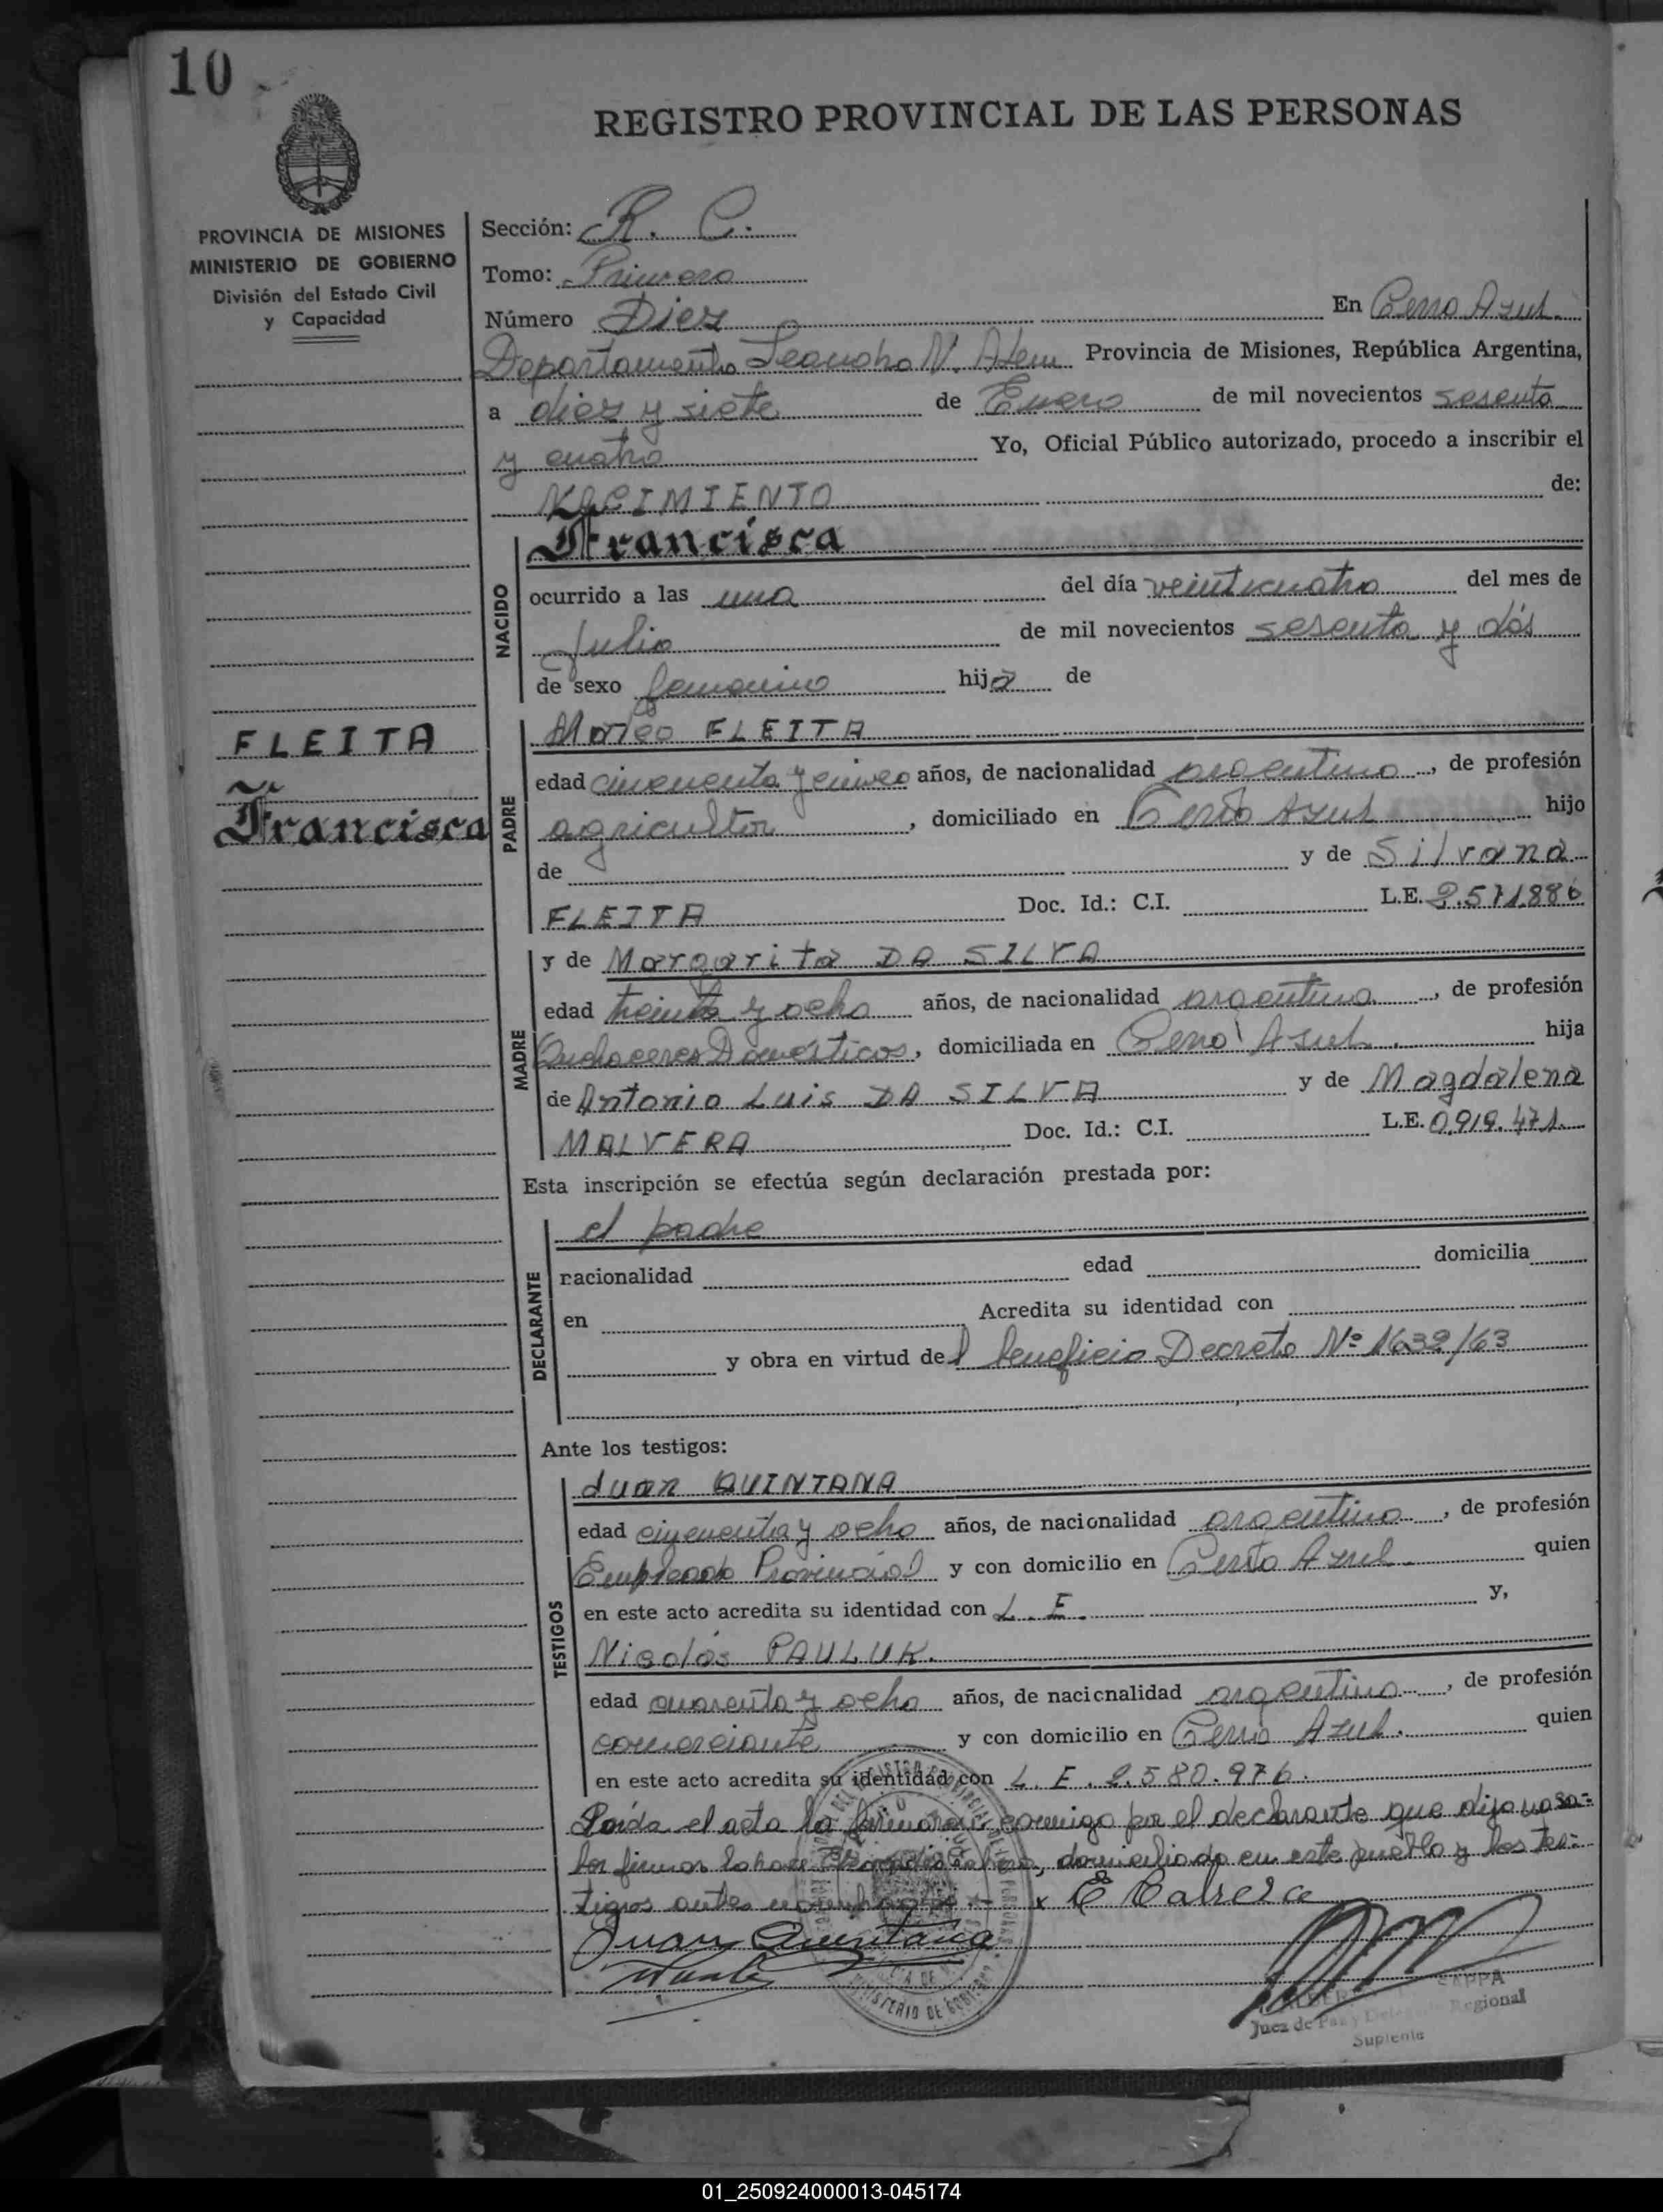 10
REGISTRO PROVINCIAL DE LAS PERSONAS
PROVINCIA DE MISIONES
MINISTERIO DE GOBIERNO
División del Estado Civil
y Capacidad
Sección: R. C.
Tomo: Primero
Número Diez En Cerro Azul.
Departamento Leandro N. Alem Provincia de Misiones, República Argentina,
a diez y siete de Enero de mil novecientos sesenta
y cuatro Yo, Oficial Público autorizado, procedo a inscribir el
NACIMIENTO de:
NACIDO
Francisca
ocurrido a las una del día veinticuatro del mes de
Julio de mil novecientos sesenta y dós
de sexo femenino hija de
FLEITA
Francisca
PADRE
FLEITA
edad cincuenta y cinco años, de nacionalidad argentino, de profesión
agricultor, domiciliado en Cerro Azul hijo
de y de Silvana
FLEITA Doc. Id.: C.I. L.E. 2.571.886
MADRE
y de Margarita DA SILVA
edad treinta y ocho años, de nacionalidad argentina, de profesión
Quehaceres Domésticos, domiciliada en Cerro Azul. hija
de Antonio Luis DA SILVA y de Magdalena
MALVERA Doc. Id.: C.I. L.E. 0.919.471.
Esta inscripción se efectúa según declaración prestada por:
DECLARANTE
el padre
nacionalidad edad domicilia
en Acredita su identidad con
y obra en virtud del beneficio Decreto Nº 1639/63
Ante los testigos:
TESTIGOS
Juan QUINTANA
edad cincuenta y ocho años, de nacionalidad argentino, de profesión
Empleado Provincial y con domicilio en Cerro Azul. quien
en este acto acredita su identidad con L. E. y,
Nicolás PAULUK.
edad cuarenta y ocho años, de nacionalidad argentino, de profesión
comerciante y con domicilio en Cerro Azul. quien
en este acto acredita su identidad con L. E. 2.580.976.
Leída el acta la firmaron conmigo por el declarante que dijo no sa-
ber firmar lo hace domiciliado en este pueblo y los tes-
tigos antes nombrados
x E Cabrera
Juan Quintana
SAPPA
Juez de Paz y Delegado Regional
Suplente
MINISTERIO DE GOBIERNO
01_250924000013-045174